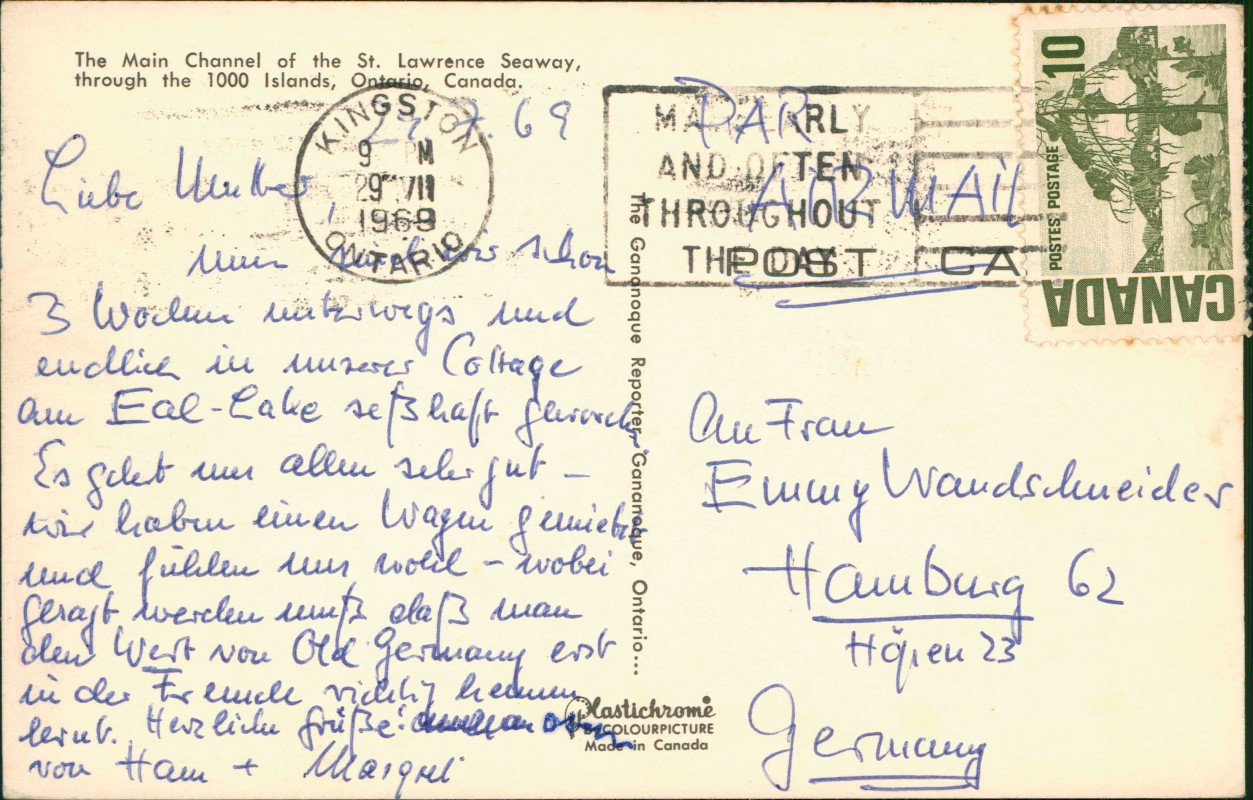 The Main Channel of the St. Lawrence Seaway,
through the 1000 Islands, Ontario, Canada.
KINGSTON
9 PM
29 VII
1969
ONTARIO
MAIL EARLY
AND OFTEN
THROUGHOUT
THE DAY
7. 69
Liebe Mutter,
nun sind wir schon
3 Wochen unterwegs und
endlich in unserer Cottage
am Eal-Lake seßhaft geworden.
Es geht uns allen sehr gut –
wir haben einen Wagen gemietet
und fühlen uns wohl – wobei
gesagt werden muß daß man
den Wert von Old Germany erst
in der Fremde richtig kennen
lernt. Herzliche Grüße
von + Margret
The Gananoque Reporter, Gananoque, Ontario...
Plastichrome
BY COLOURPICTURE
Made in Canada
PAR
AIR MAIL
POST CA
10
POSTES POSTAGE
CANADA
An Frau
Emmy Wandschneider
Hamburg 62
23
Germany